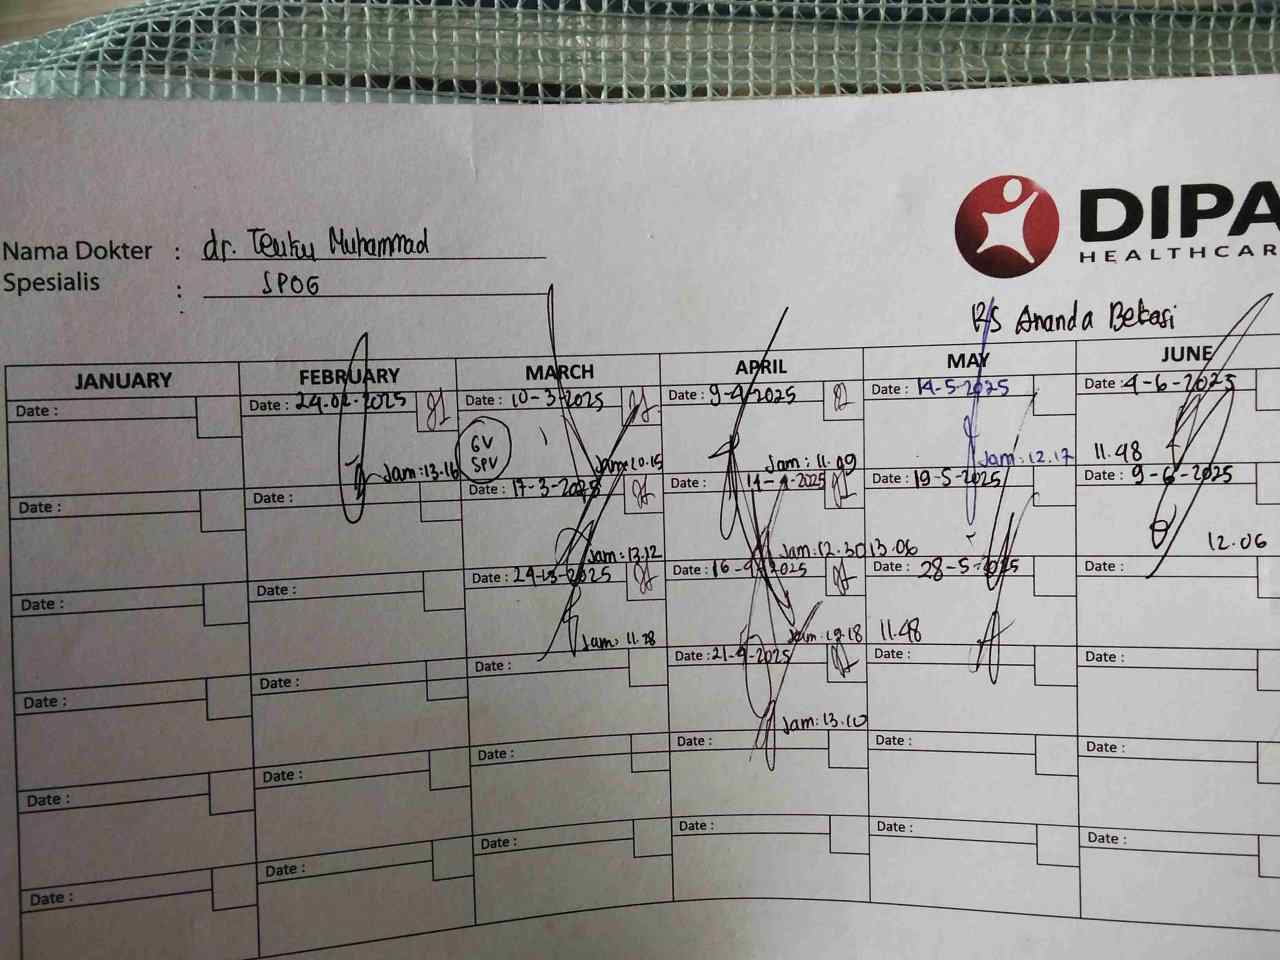 DIPA
HEALTHCAR
Nama Dokter : dr. Teuku Muhammad
Spesialis : SPOG
RS Ananda Bekasi
JANUARY FEBRUARY MARCH APRIL MAY JUNE
Date : Date : 24-02-2025 Date : 10-3-2025 Date : 9-4-2025 Date : 14-5-2025 Date : 4-6-2025
GV
SPV
Jam: 13.16 Jam: 10.15 Jam: 11.49 Jam: 12.17 11.48
Date : Date : Date : 17-3-2025 Date : 14-4-2025 Date : 19-5-2025 Date : 9-6-2025
Jam: 13.12 Jam: 12.30 13.06 12.06
Date : Date : Date : 24-3-2025 Date : 16-4-2025 Date : 28-5-2025 Date :
Jam: 11.28 Jam: 12.18 11.48
Date : Date : Date : Date : 21-4-2025 Date : Date :
Jam: 13.10
Date : Date : Date : Date : Date : Date :
Date : Date : Date : Date : Date : Date :